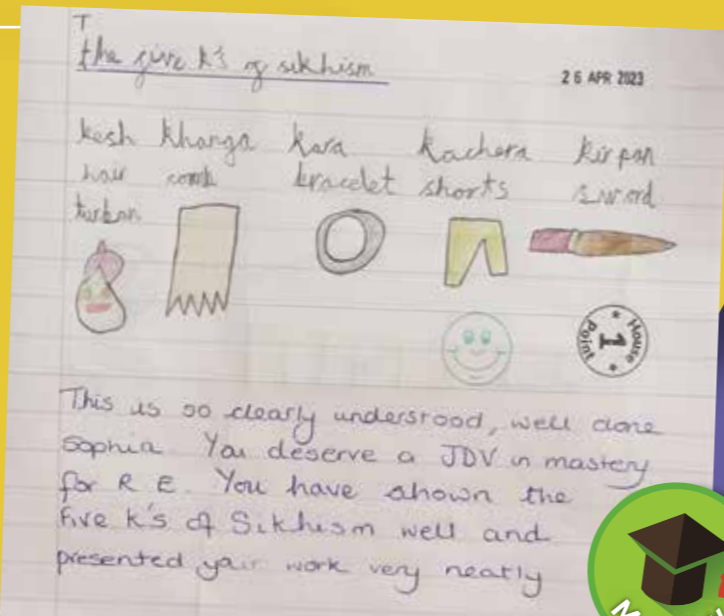 T
the five k's of sikhism
26 APR 2023
kesh khanga kara kachera kirpan
hair comb bracelet shorts sword
turban
House
1
Point
This is so clearly understood, well done
Sophia. You deserve a JDV in mastery
for R E. You have shown the
five k's of Sikhism well and
presented your work very neatly